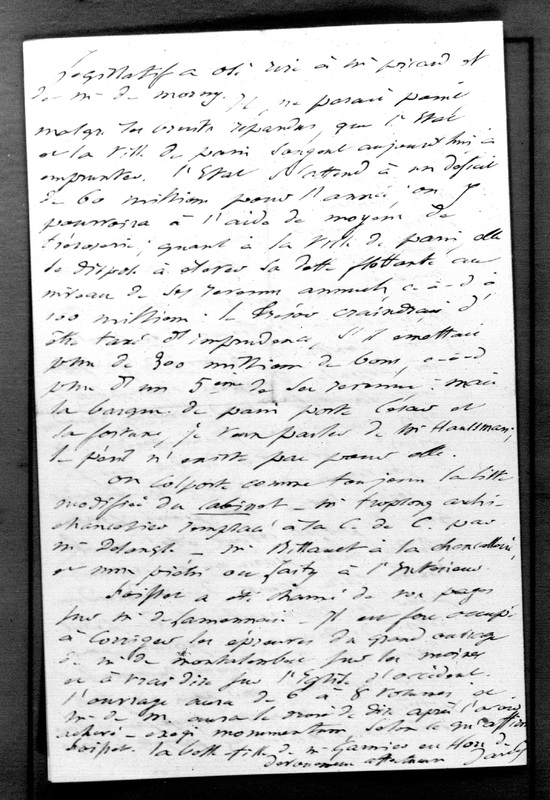 législatif a été dire à Mr Picard et
de Mr de Morny. Il ne parait pas
malgré les bruits répandus, que l'Etat
et la Ville de Paris songent aujourd'hui à
emprunter. l'Etat s'attend à un déficit
de 60 millions pour l'année, on y
pourvoira à l'aide de moyens de
trésorerie; quant à la Ville de Paris elle
se dispose à élever sa dette flottante au
niveau de ses revenus annuels, c-à-d à
100 millions: le trésor craindrait d'
être taxé d'imprudence, s'il émettait
plus de 300 millions de bons, c-à-d
plus d'un 5eme de ses revenus: mais
la barque de Paris porte César et
sa fortune, je veux parler de Mr Haussmann;
le péril n'existe pas pour elle.
on colporte comme toujours la liste
modifiée du cabinet - Mr Troplong archi-
chancelier remplacé à la C. de C. par
Mr Delangle - Mr Billault à la chancellerie,
et Piétri ou à l'Intérieur.
Soisset a été charmé de vos pages
sur Mr de Lamennais - Il est fort occupé
à corriger les épreuves du grand ouvrage
de Mr de Montalembert sur les moines
et à vrai dire sur l'Eglise d'occident.
l'ouvrage aura de 6 à 8 volumes et
Mr de M. aura le mérite de dix après l'avoir
achevé - exegi monumentum, selon ce qu'affirme
la belle-fille de Mr Garnier est Hors de